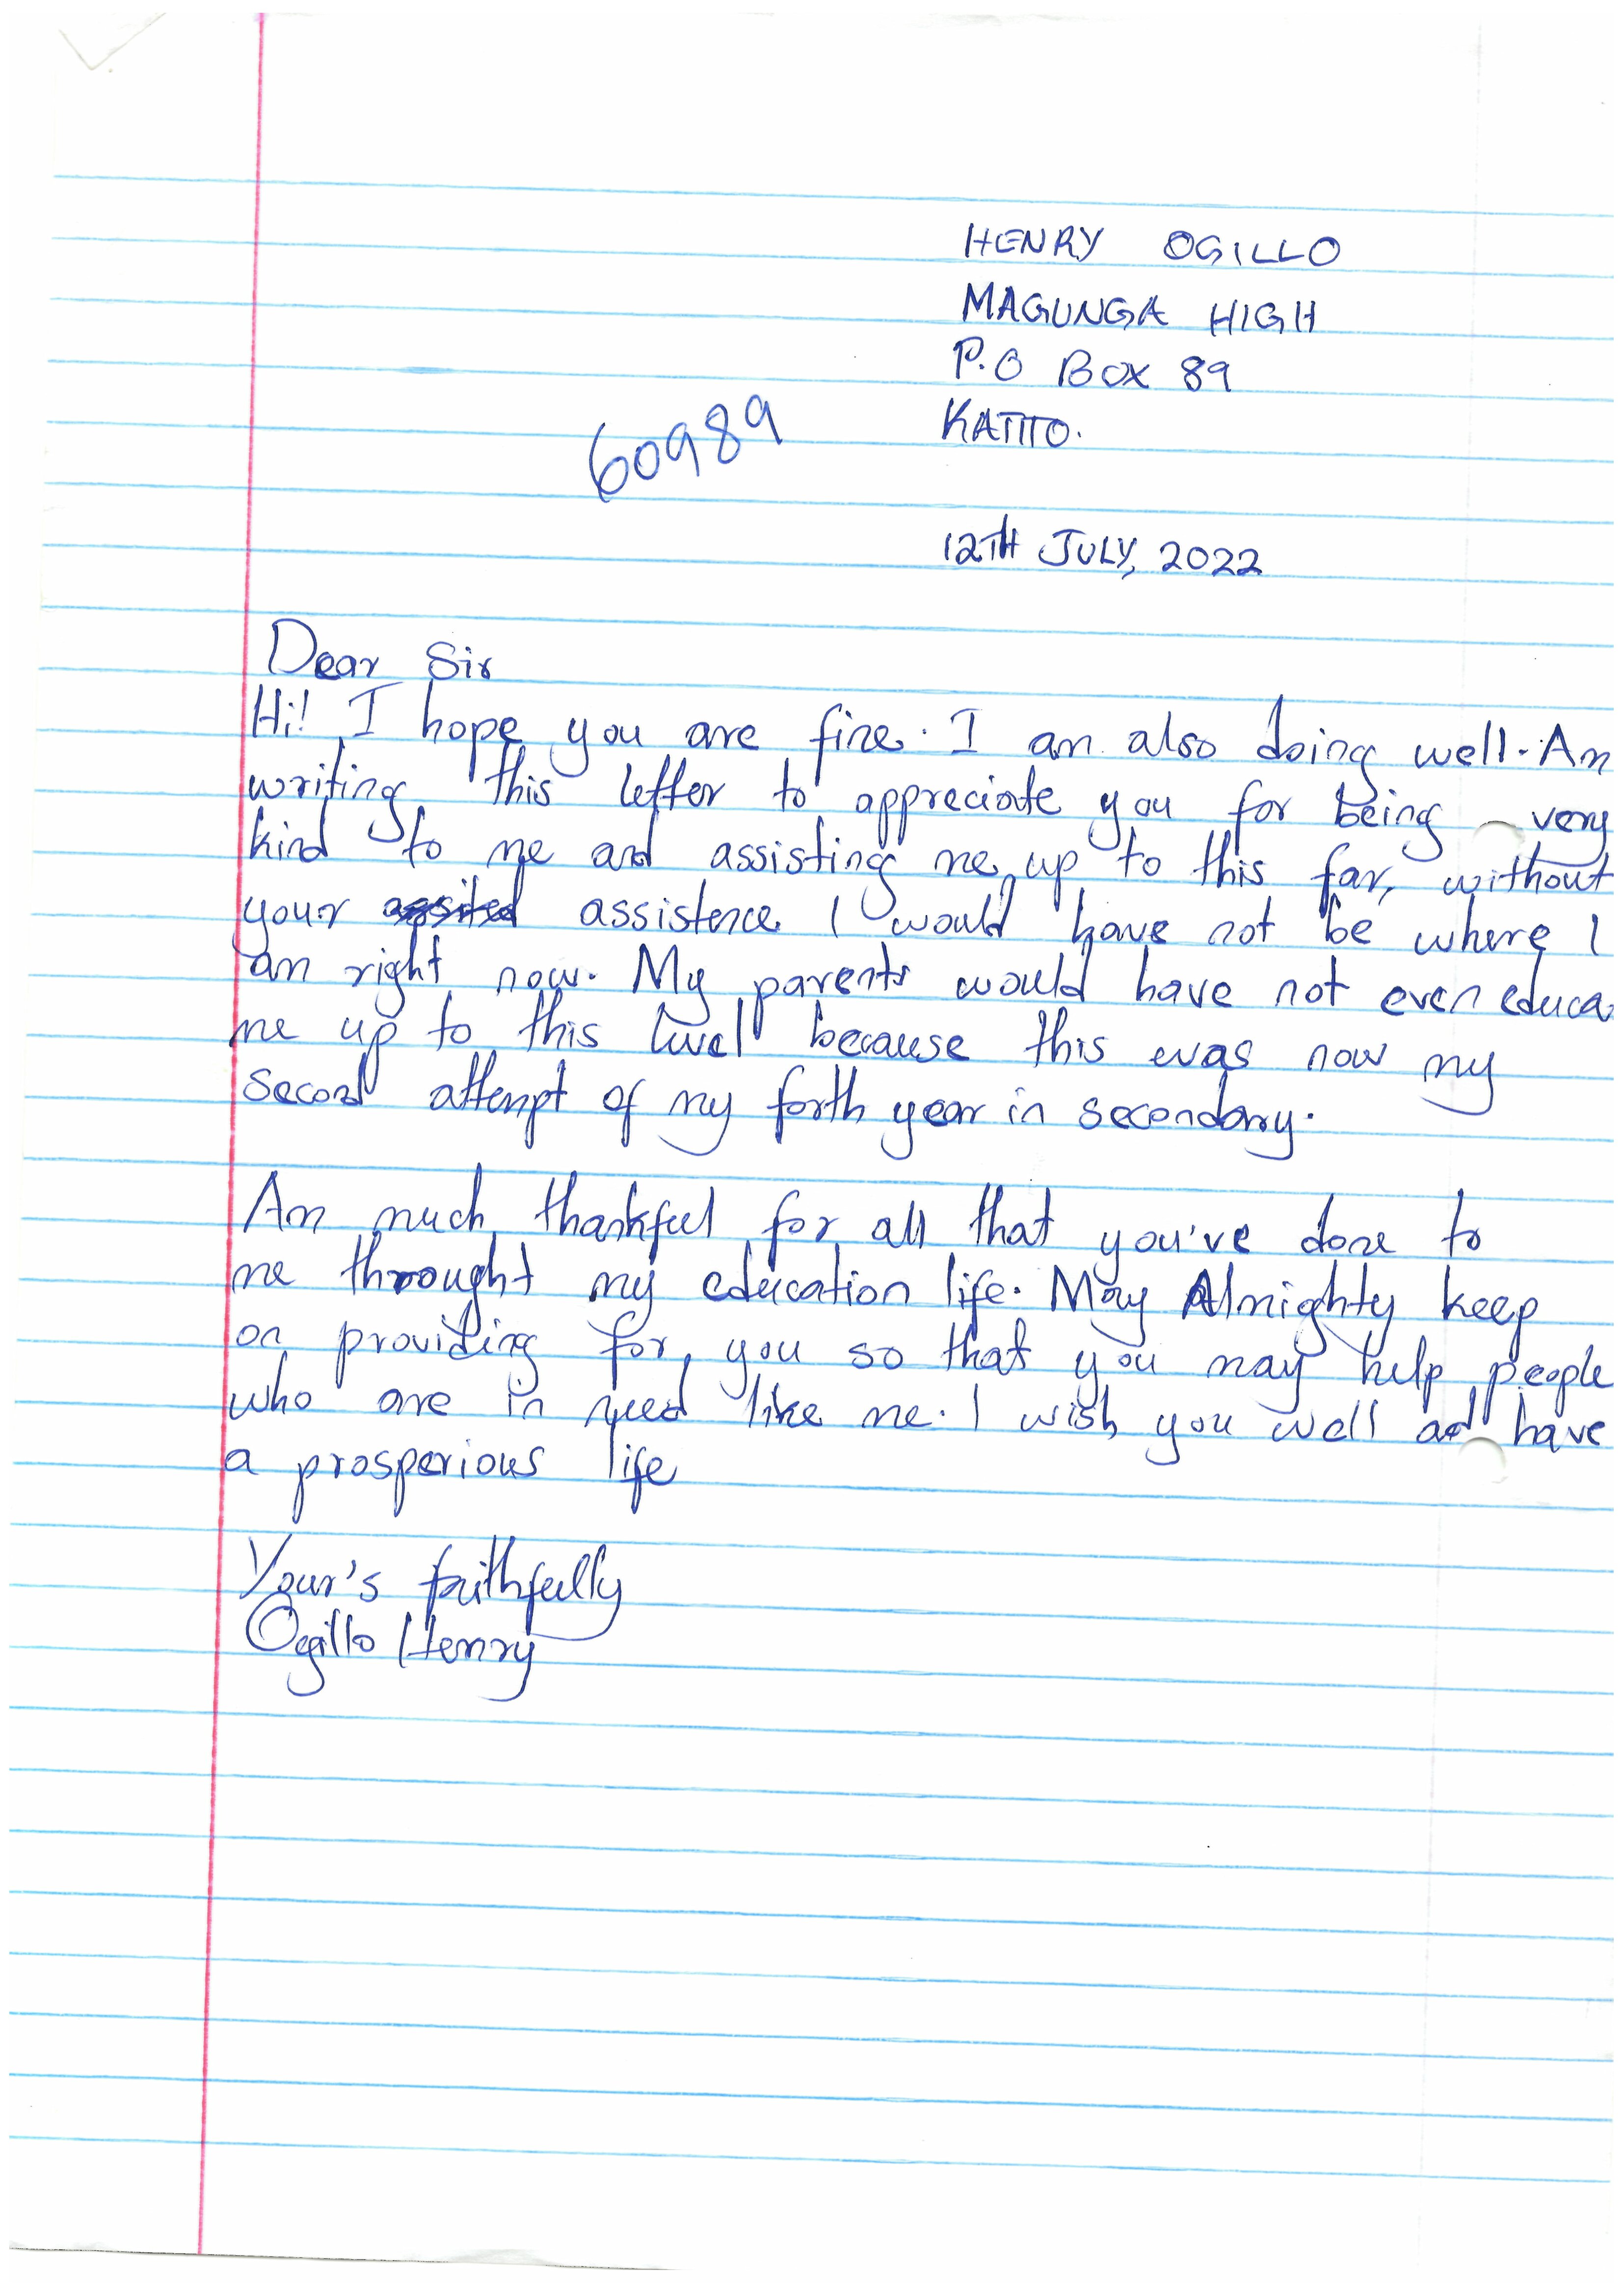 HENRY OGILLO
MAGUNGA HIGH
P.O BOX 89
KATITO.
60989
12TH JULY, 2022
Dear Sir
Hi! I hope you are fine. I am also doing well. Am
writing this letter to appreciate you for being very
kind to me and assisting me up to this far, without
your assistence I would have not be where I
am right now. My parents would have not even educa
me up to this level because this was now my
second attempt of my forth year in secondary.
Am much thankful for all that you've done to
me throught my education life. May Almighty keep
on providing for you so that you may help people
who are in need like me. I wish you well ad have
a prosperious life
Your's faithfully
Ogillo Henry